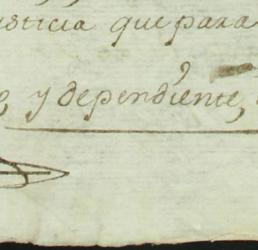 usticia que para
y dependiente,